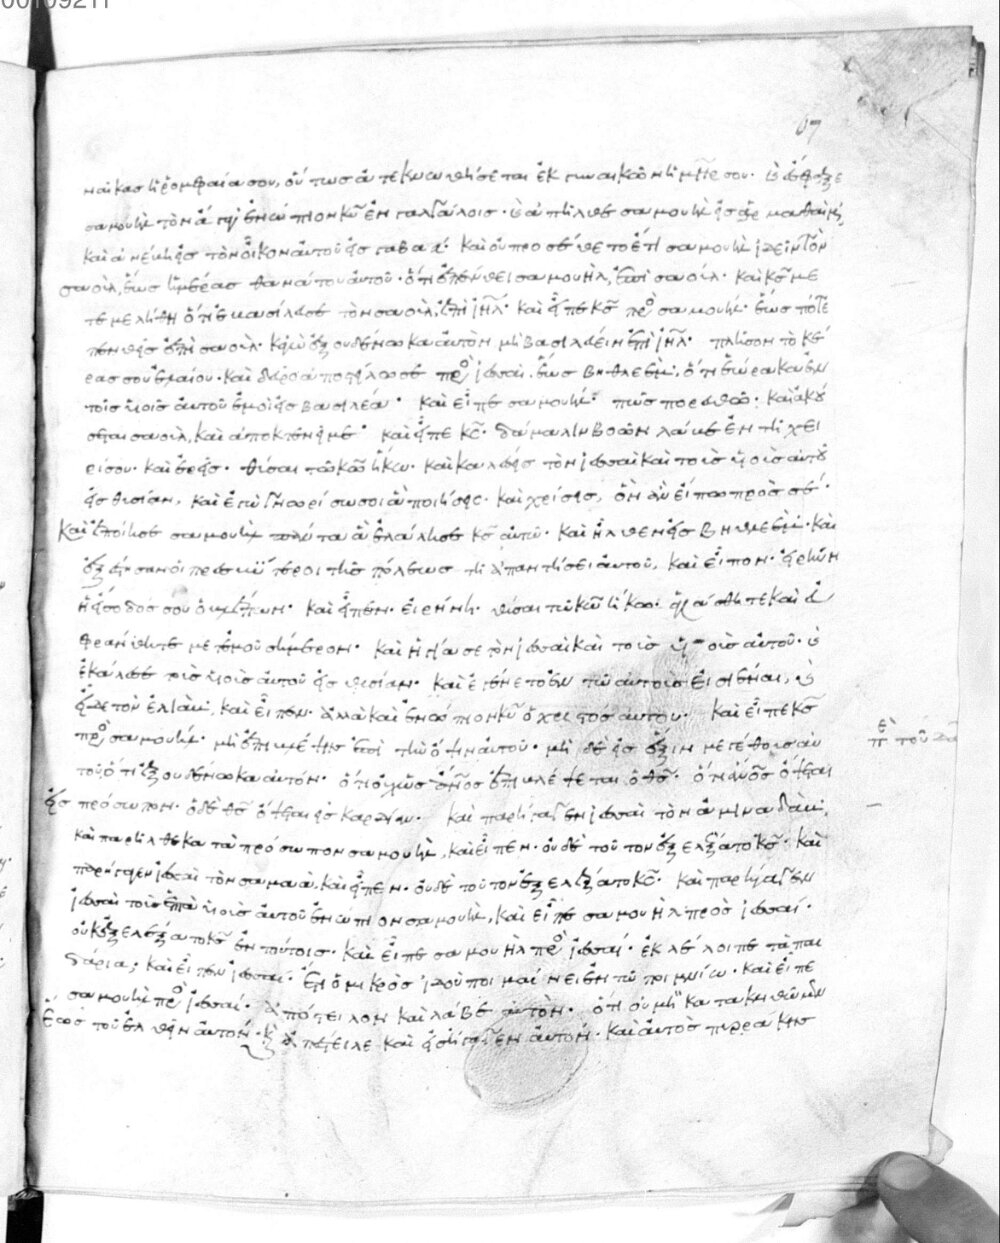 00109211
67
ναῖκας ἡ ῥομφαία σου, οὕτως ἀτεκνωθήσεται ἐκ γυναικῶν ἡ μ̅η̅ρ σου. καὶ ἔσφαξε
σαμουὴλ τὸν ἀγὰγ ἐνώπιον κ̅υ̅ ἐν γαλγάλοις. καὶ ἀπῆλθε σαμουὴλ εἰς ἀρμαθαὶμ,
καὶ ἀνέβη εἰς τὸν οἶκον αὐτοῦ εἰς γαβαά. καὶ οὐ προσέθετο ἔτι σαμουὴλ ἰδεῖν τὸν
σαούλ, ἕως ἡμέρας θανάτου αὐτοῦ. ὅτι ἐπένθει σαμουὴλ, ἐπὶ σαούλ. καὶ κ̅ς̅ με
τεμελήθη ὅτι ἐβασίλευσε τὸν σαοὺλ, ἐπὶ ι̅η̅λ̅. καὶ εἶπε κ̅ς̅ πρὸ σαμουήλ. ἕως πότε
πενθεῖς ἐπὶ σαούλ. κἀγὼ ἐξουδένωκα αὐτὸν μὴ βασιλεύειν ἐπὶ ι̅η̅λ̅. πλῆσον τὸ κέ
ρας σου ἐλαίου. καὶ δεῦρο ἀποστείλω σε πρὸ ἰεσσαὶ. ἕως βηθλεὲμ, ὅτι ἑώρακα ἐν
τοῖς υἱοῖς αὐτοῦ ἐμοὶ εἰς βασιλέα. καὶ εἶπε σαμουήλ. πῶς πορευθῶ. καὶ ἀκού
σεται σαοὺλ, καὶ ἀποκτενεῖ με. καὶ εἶπε κ̅ς̅. δάμαλιν βοῶν λάβε ἐν τῇ χει
ρί σου. καὶ ἐρεῖς. θῦσαι τῶ κ̅ω̅ ἥκω. καὶ καλέσεις τὸν ἰεσσαὶ καὶ τοὶς υἱοῖς αὐτοῦ
εἰς θυσίαν, καὶ ἐγὼ γνωρίσω σοι ἃ ποιήσεις. καὶ χρίσεις, ὃν ἂν εἴπω πρὸς σέ.
καὶ ἐποίησε σαμουὴλ πάντα ἃ ἐλάλησε κ̅ς̅ αὐτῶ. καὶ ἦλθεν εἰς βηθλεὲμ. καὶ
ἐξέστησαν οἱ πρεσβύτεροι τῆς πόλεως τῇ ἀπαντήσει αὐτοῦ, καὶ εἶπον. εἰρήνη
ἡ εἴσοδός σου ὁ βλέπων. καὶ εἶπεν. εἰρήνη. θῦσαι τῶ κ̅ω̅ ἥκω. ἁγιάσθητε καὶ εὐ
φρανθῆτε μετ ἐμοῦ σήμερον. καὶ ἡγίασε τὸν ἰεσσαὶ καὶ τοὶς υἱοῖς αὐτοῦ. καὶ
ἐκάλεσε τοὶς υἱοῖς αὐτοῦ εἰς θυσίαν. καὶ ἐγένετο ἐν τῶ αὐτοὶς εἰσιέναι, καὶ
εἶδε τὸν ἐλιὰμ, καὶ εἶπεν. ἀλλὰ καὶ ἐνώπιον κ̅υ̅ ὁ χριστὸς αὐτοῦ. καὶ εἶπε κ̅ς̅
πρὸ σαμουήλ. μὴ ἐπιβλέψης ἐπὶ τὴν ὄψιν αὐτοῦ. μὴ δὲ εἰς ἕξιν μεγέθους αὐ
τοῦ ὅτι ἐξουδένωκα αὐτόν. ὅτι οὐχ ὡς ἄ̅ν̅ο̅ς ἐπιβλέψεται. ὁ θ̅ς̅. ὅτι ἄ̅ν̅ο̅ς ὄψεται
εἰς πρόσωπον. ὁ δὲ θ̅ς̅ ὄψεται εἰς καρδίαν. καὶ παρήγαγεν ἰεσσαὶ τὸν ἀμιναδάμ,
καὶ παρῆλθε κατὰ πρόσωπον σαμουὴλ, καὶ εἶπεν. οὐδὲ τοῦτον ἐξελέξατο κ̅ς̅. καὶ
παρήγαγεν ἰεσσαὶ τὸν σαμαὰ, καὶ εἶπεν. οὐδὲ τοῦτον ἐξελέξατο κ̅ς̅. καὶ παρήγαγεν
ἰεσσαὶ τοὶς ἑπτὰ υἱοῖς αὐτοῦ ἐνώπιον σαμουὴλ, καὶ εἶπε σαμουὴλ πρὸς ἰεσσαί.
οὐκ ἐξελέξατο κ̅ς̅ ἐν τούτοις. καὶ εἶπε σαμουὴλ πρὸ ἰεσσαί. ἐκλέλοιπε τὰ παι
δάρια; καὶ εἶπεν ἰεσσαί. ἔτι ὁ μικρὸς ἰδοὺ ποιμαίνει ἐν τῶ ποιμνίω. καὶ εἶπε
σαμουὴλ πρὸ ἰεσσαί. ἀπόστειλον καὶ λάβε αὐτὸν. ὅτι οὐ μὴ κατακλιθῶμεν
ἕως τοῦ ἐλθεῖν αὐτόν. καὶ ἀπέστειλε καὶ εἰσήγαγεν αὐτόν. καὶ αὐτὸς πυρράκης